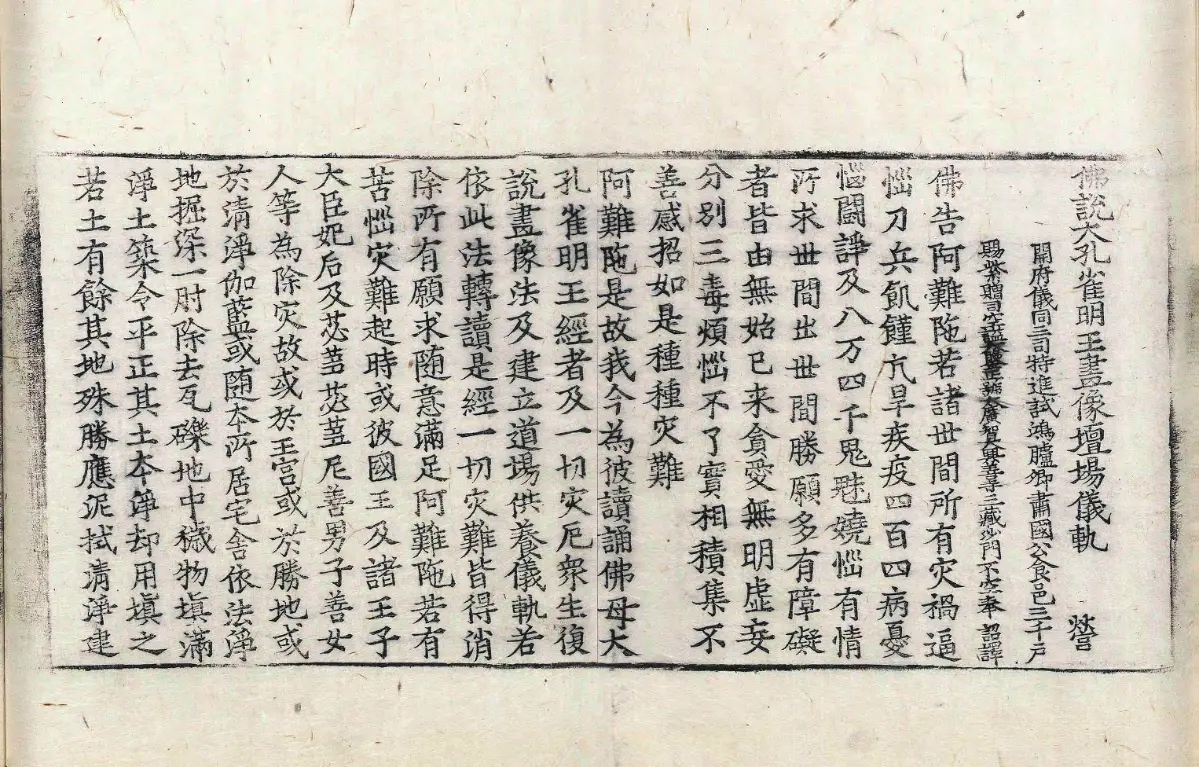 佛說大孔雀明王畫像壇場儀軌 營
開府儀同三司特進試鴻臚卿肅國公食邑三千戶
賜紫贈司空謚大鑒正号大廣智大興善寺三藏沙門不空奉 詔譯
佛告阿難陁若諸世間所有灾禍逼
惱刀兵飢饉亢旱疾疫四百四病憂
惱鬪諍及八万四千鬼魅嬈惱有情
所求世間出世間勝願多有障礙
者皆由無始已来貪愛無明虛妄
分別三毒煩惱不了實相積集不
善感招如是種種灾難
阿難陁是故我今為彼讀誦佛母大
孔雀明王經者及一切灾厄衆生復
說畫像法及建立道場供養儀軌若
依此法轉讀是經一切灾難皆得消
除所有願求随意滿足阿難陁若有
苦惱灾難起時或彼國王及諸王子
大臣妃后及苾蒭苾蒭尼善男子善女
人等為除灾故或於王宮或於勝地或
於清淨伽藍或随本所居宅舍依法淨
地掘深一肘除去瓦礫地中穢物填滿
淨土築令平正其土本淨却用填之
若土有餘其地殊勝應泥拭清淨建